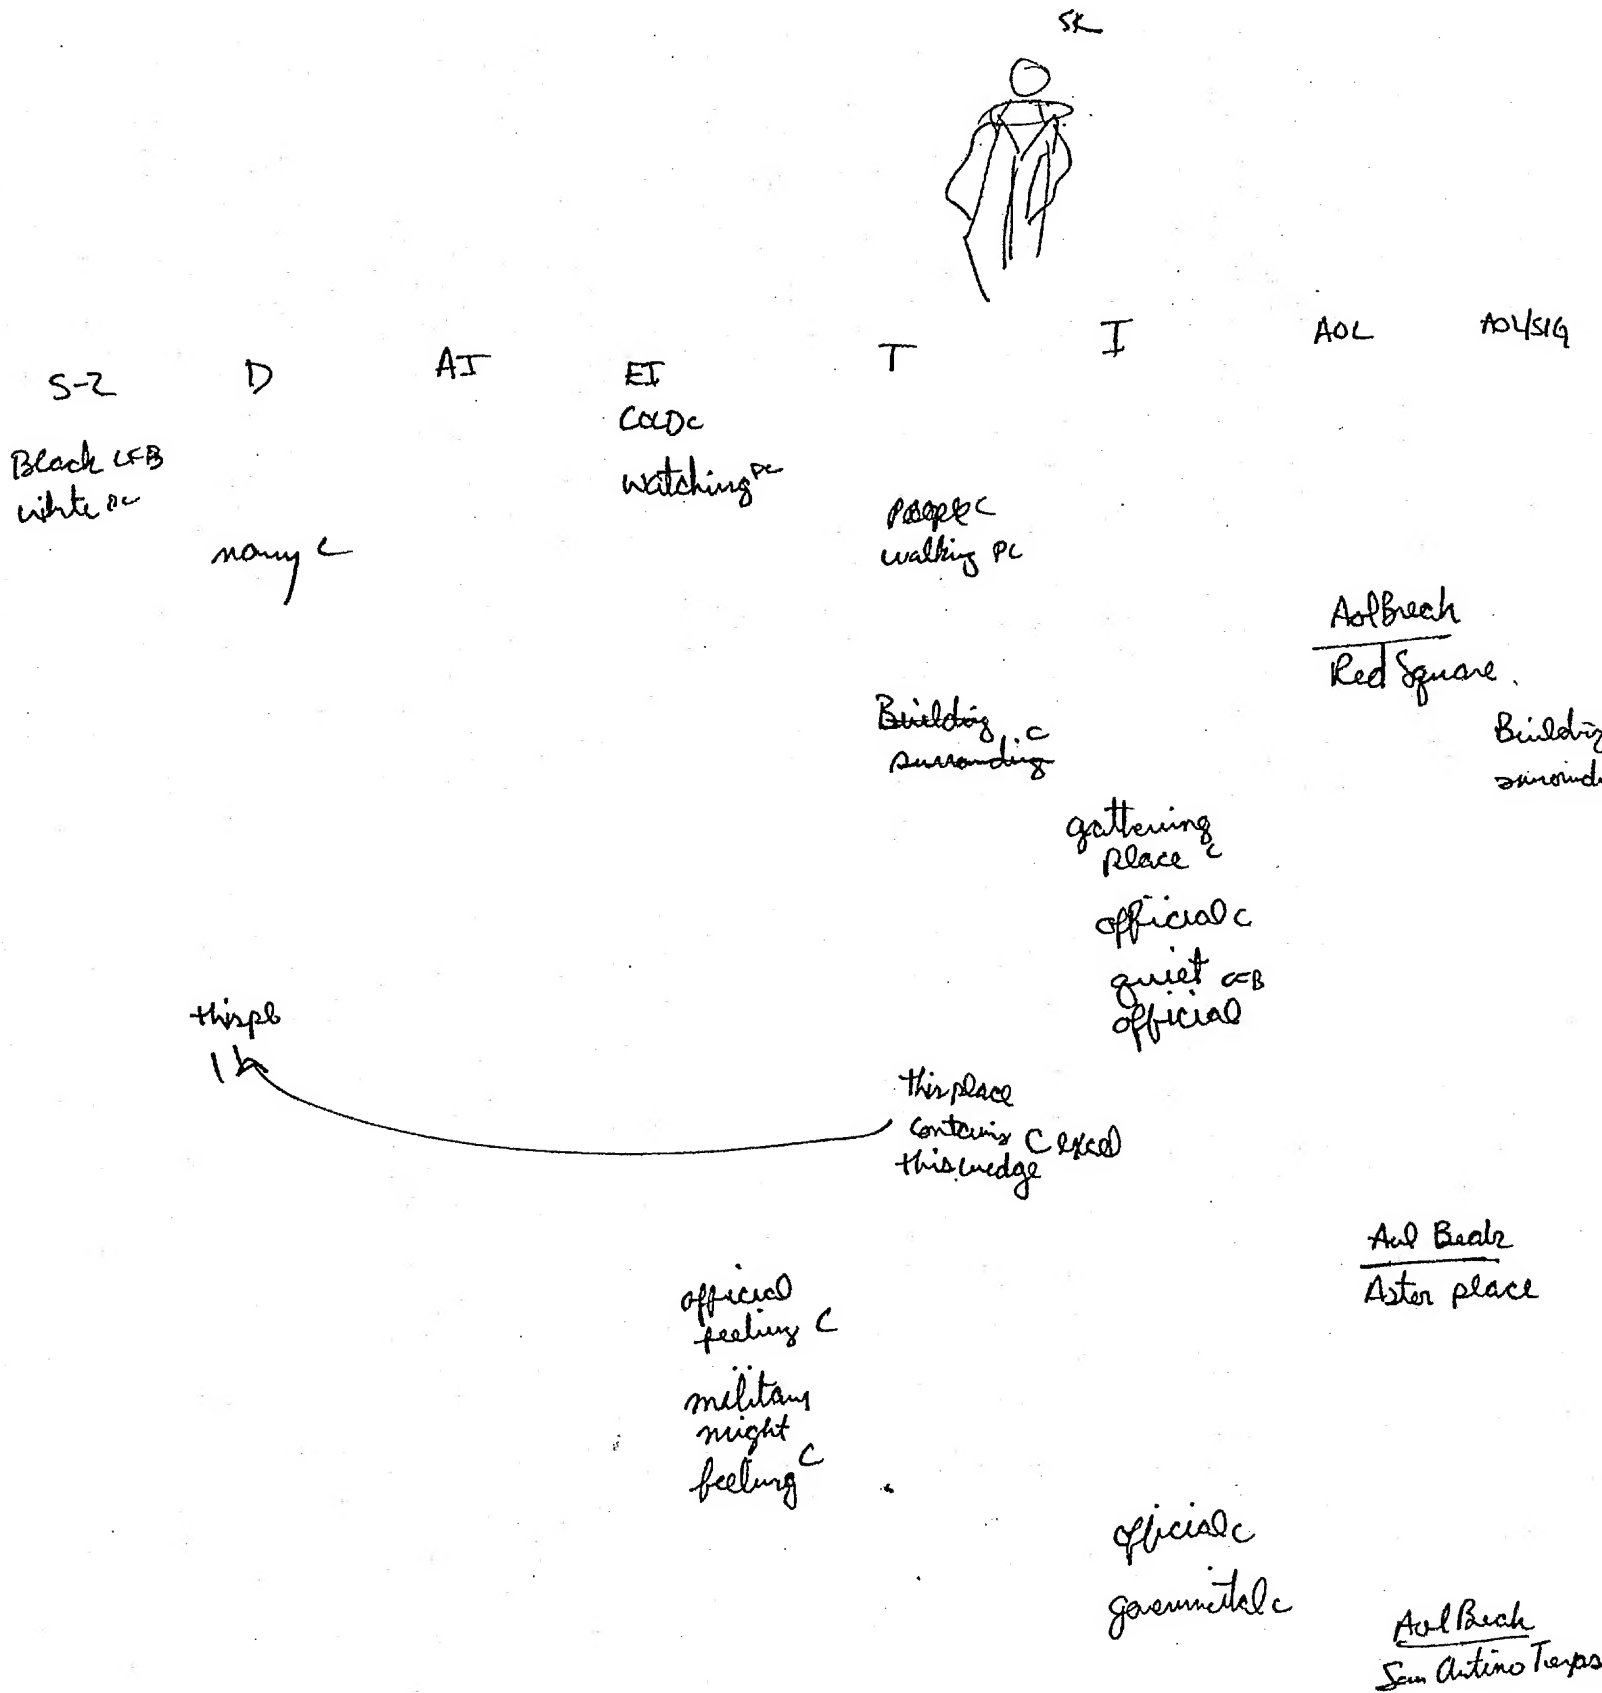 SK
S-2 D AI EI T I AOL AOL/SIG
COLD C
Black CFB
white PC
watching PC
People C
walking PC
many C
Aol Break
Red Square.
Building C
surrounding
Building
surround
gathering
place C
official C
quiet CFB
official
this pl
this place
contains C
this wedge
Aol Break
Aster place
official
feeling C
military
might
feeling C
official C
govermental C
Aol Break
San Antino Texas